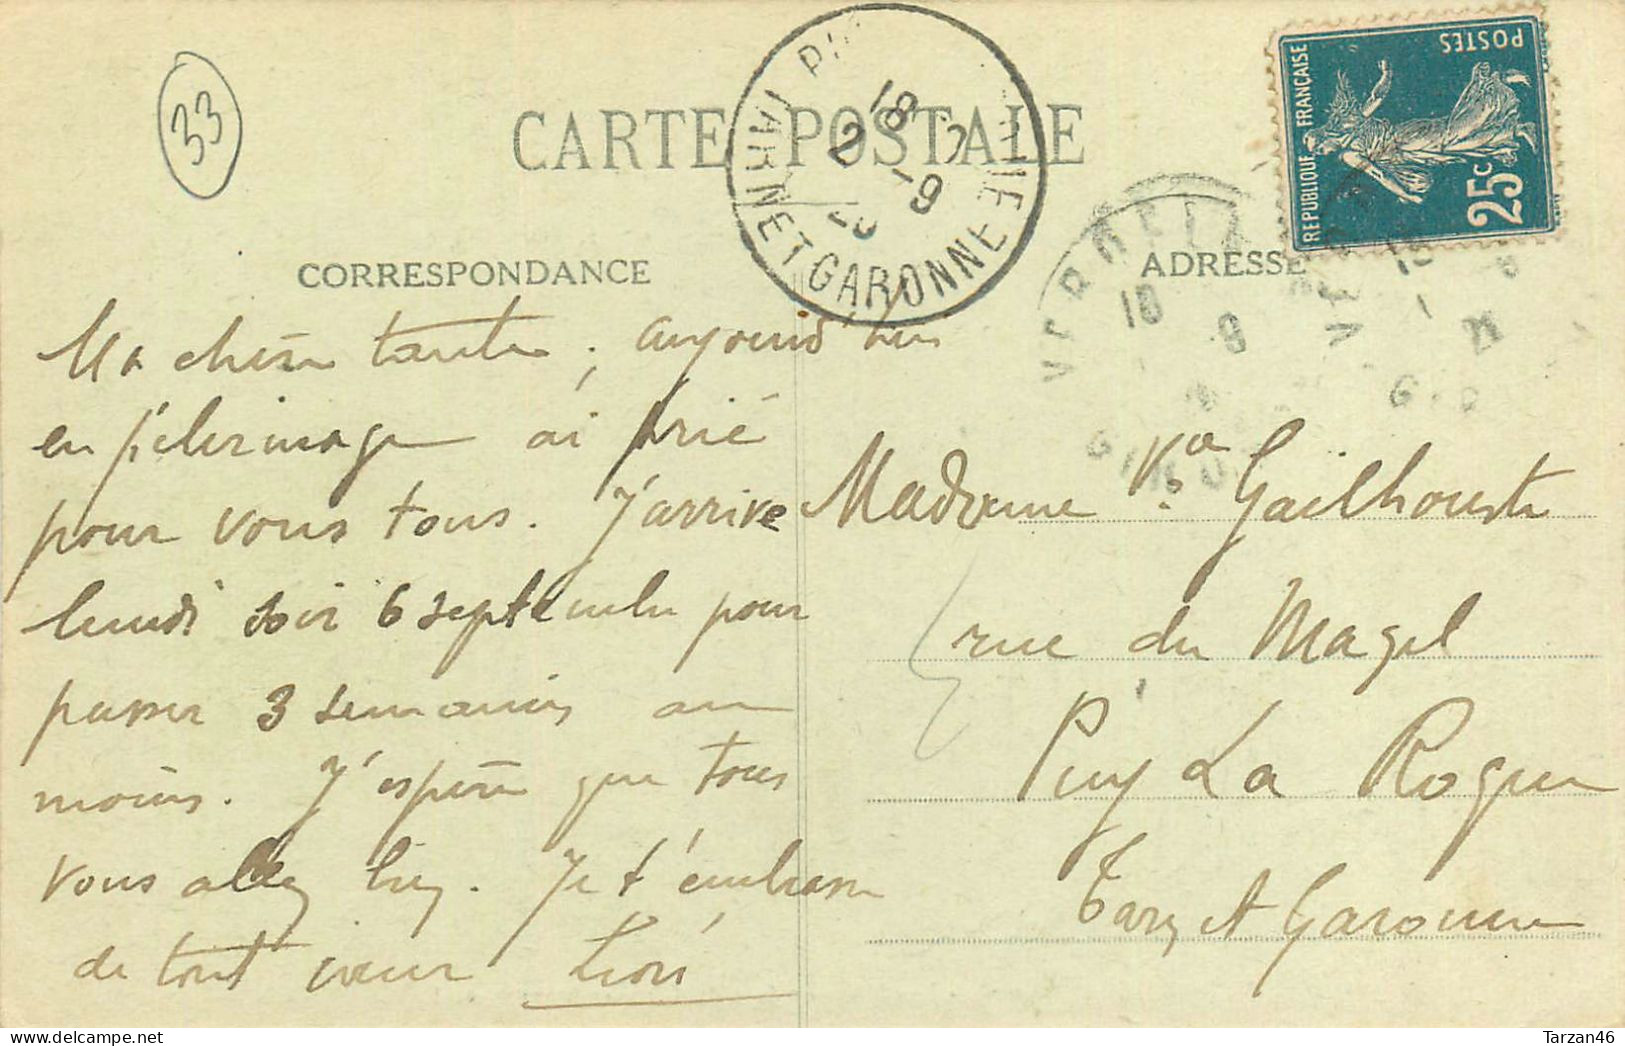 33
CARTE POSTALE
CORRESPONDANCE
ADRESSE
REPUBLIQUE FRANÇAISE
POSTES
25c
18
2 - 9
TARN ET GARONNE
Ma chère tante, aujourd'hui
en pélerinage ai prié
pour vous tous. J'arrive
lundi soir 6 septembre pour
passer 3 semaines au
moins. J'espère que tous
vous allez bien. Je t'embrasse
de tout cœur
Madame Vve Gailhouste
rue du Magel
Puy La Roque
Tarn et Garonne
Tarzan46